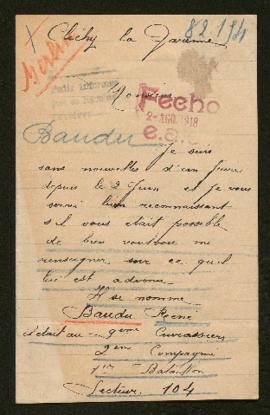 Clichy la Garenne
82.194
Merlin
Fecho
2-AGO. 1918
e.a.
Monsieur
Baudu
Je suis
sans nouvelles d'un frère
depuis le 2 Juin et je vous
serai bien reconnaissant
s'il vous était possible
de bien vouloir me
renseigner sur ce qu'il
lui est advenu.
Il se nomme
Baudu René
il était au 9eme Cuirassiers
2eme Compagnie
1er Bataillon
Secteur 104